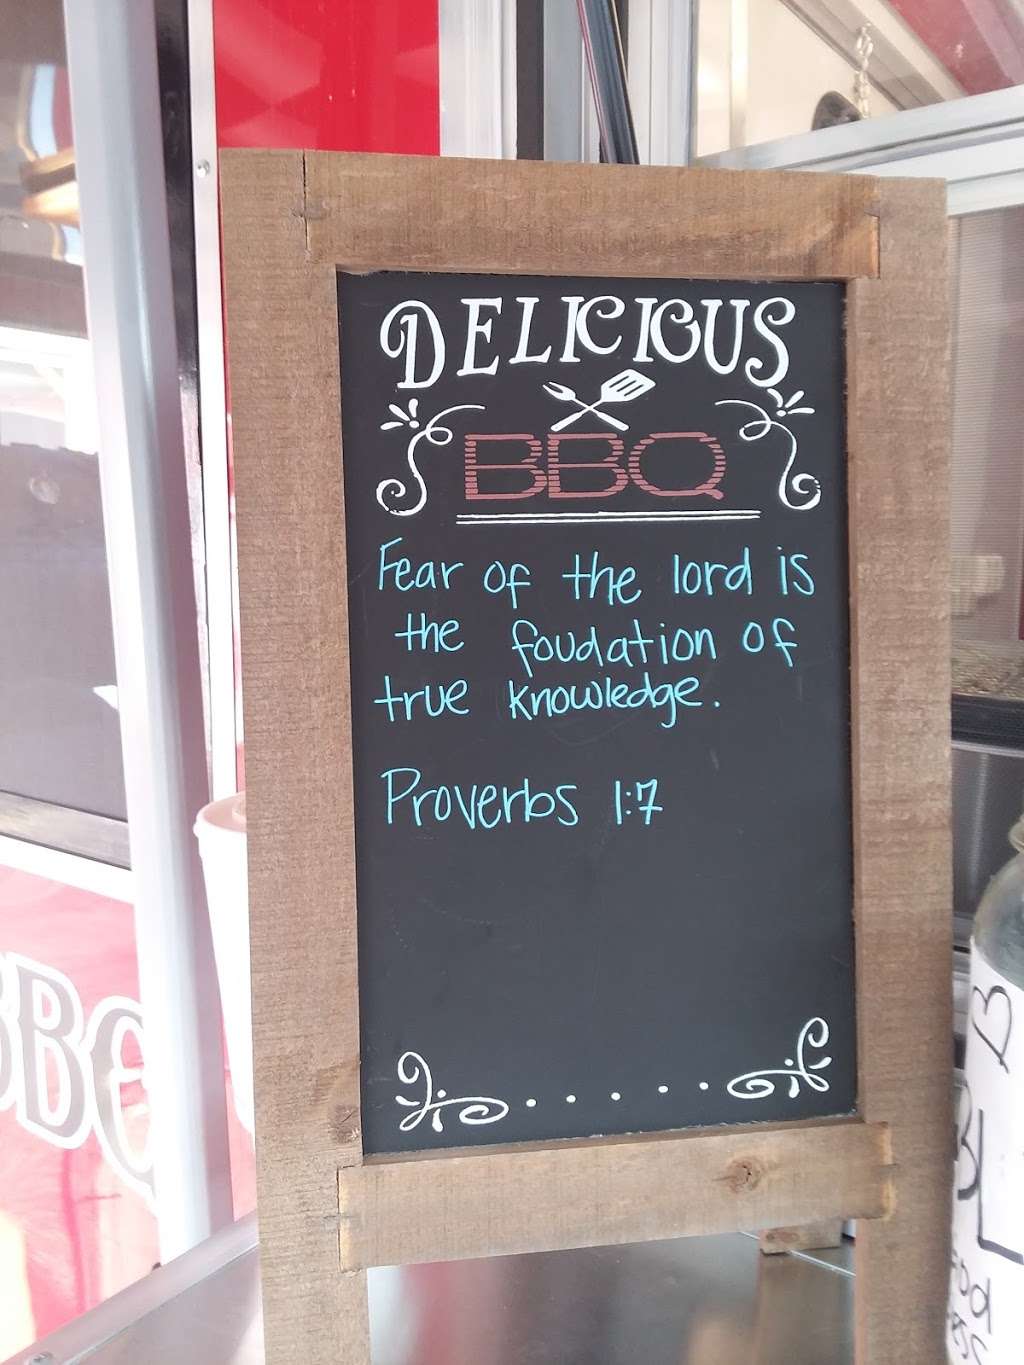 DELICIOUS
BBQ
Fear of the lord is
the foudation of
true knowledge.
Proverbs 1:7
BBQ